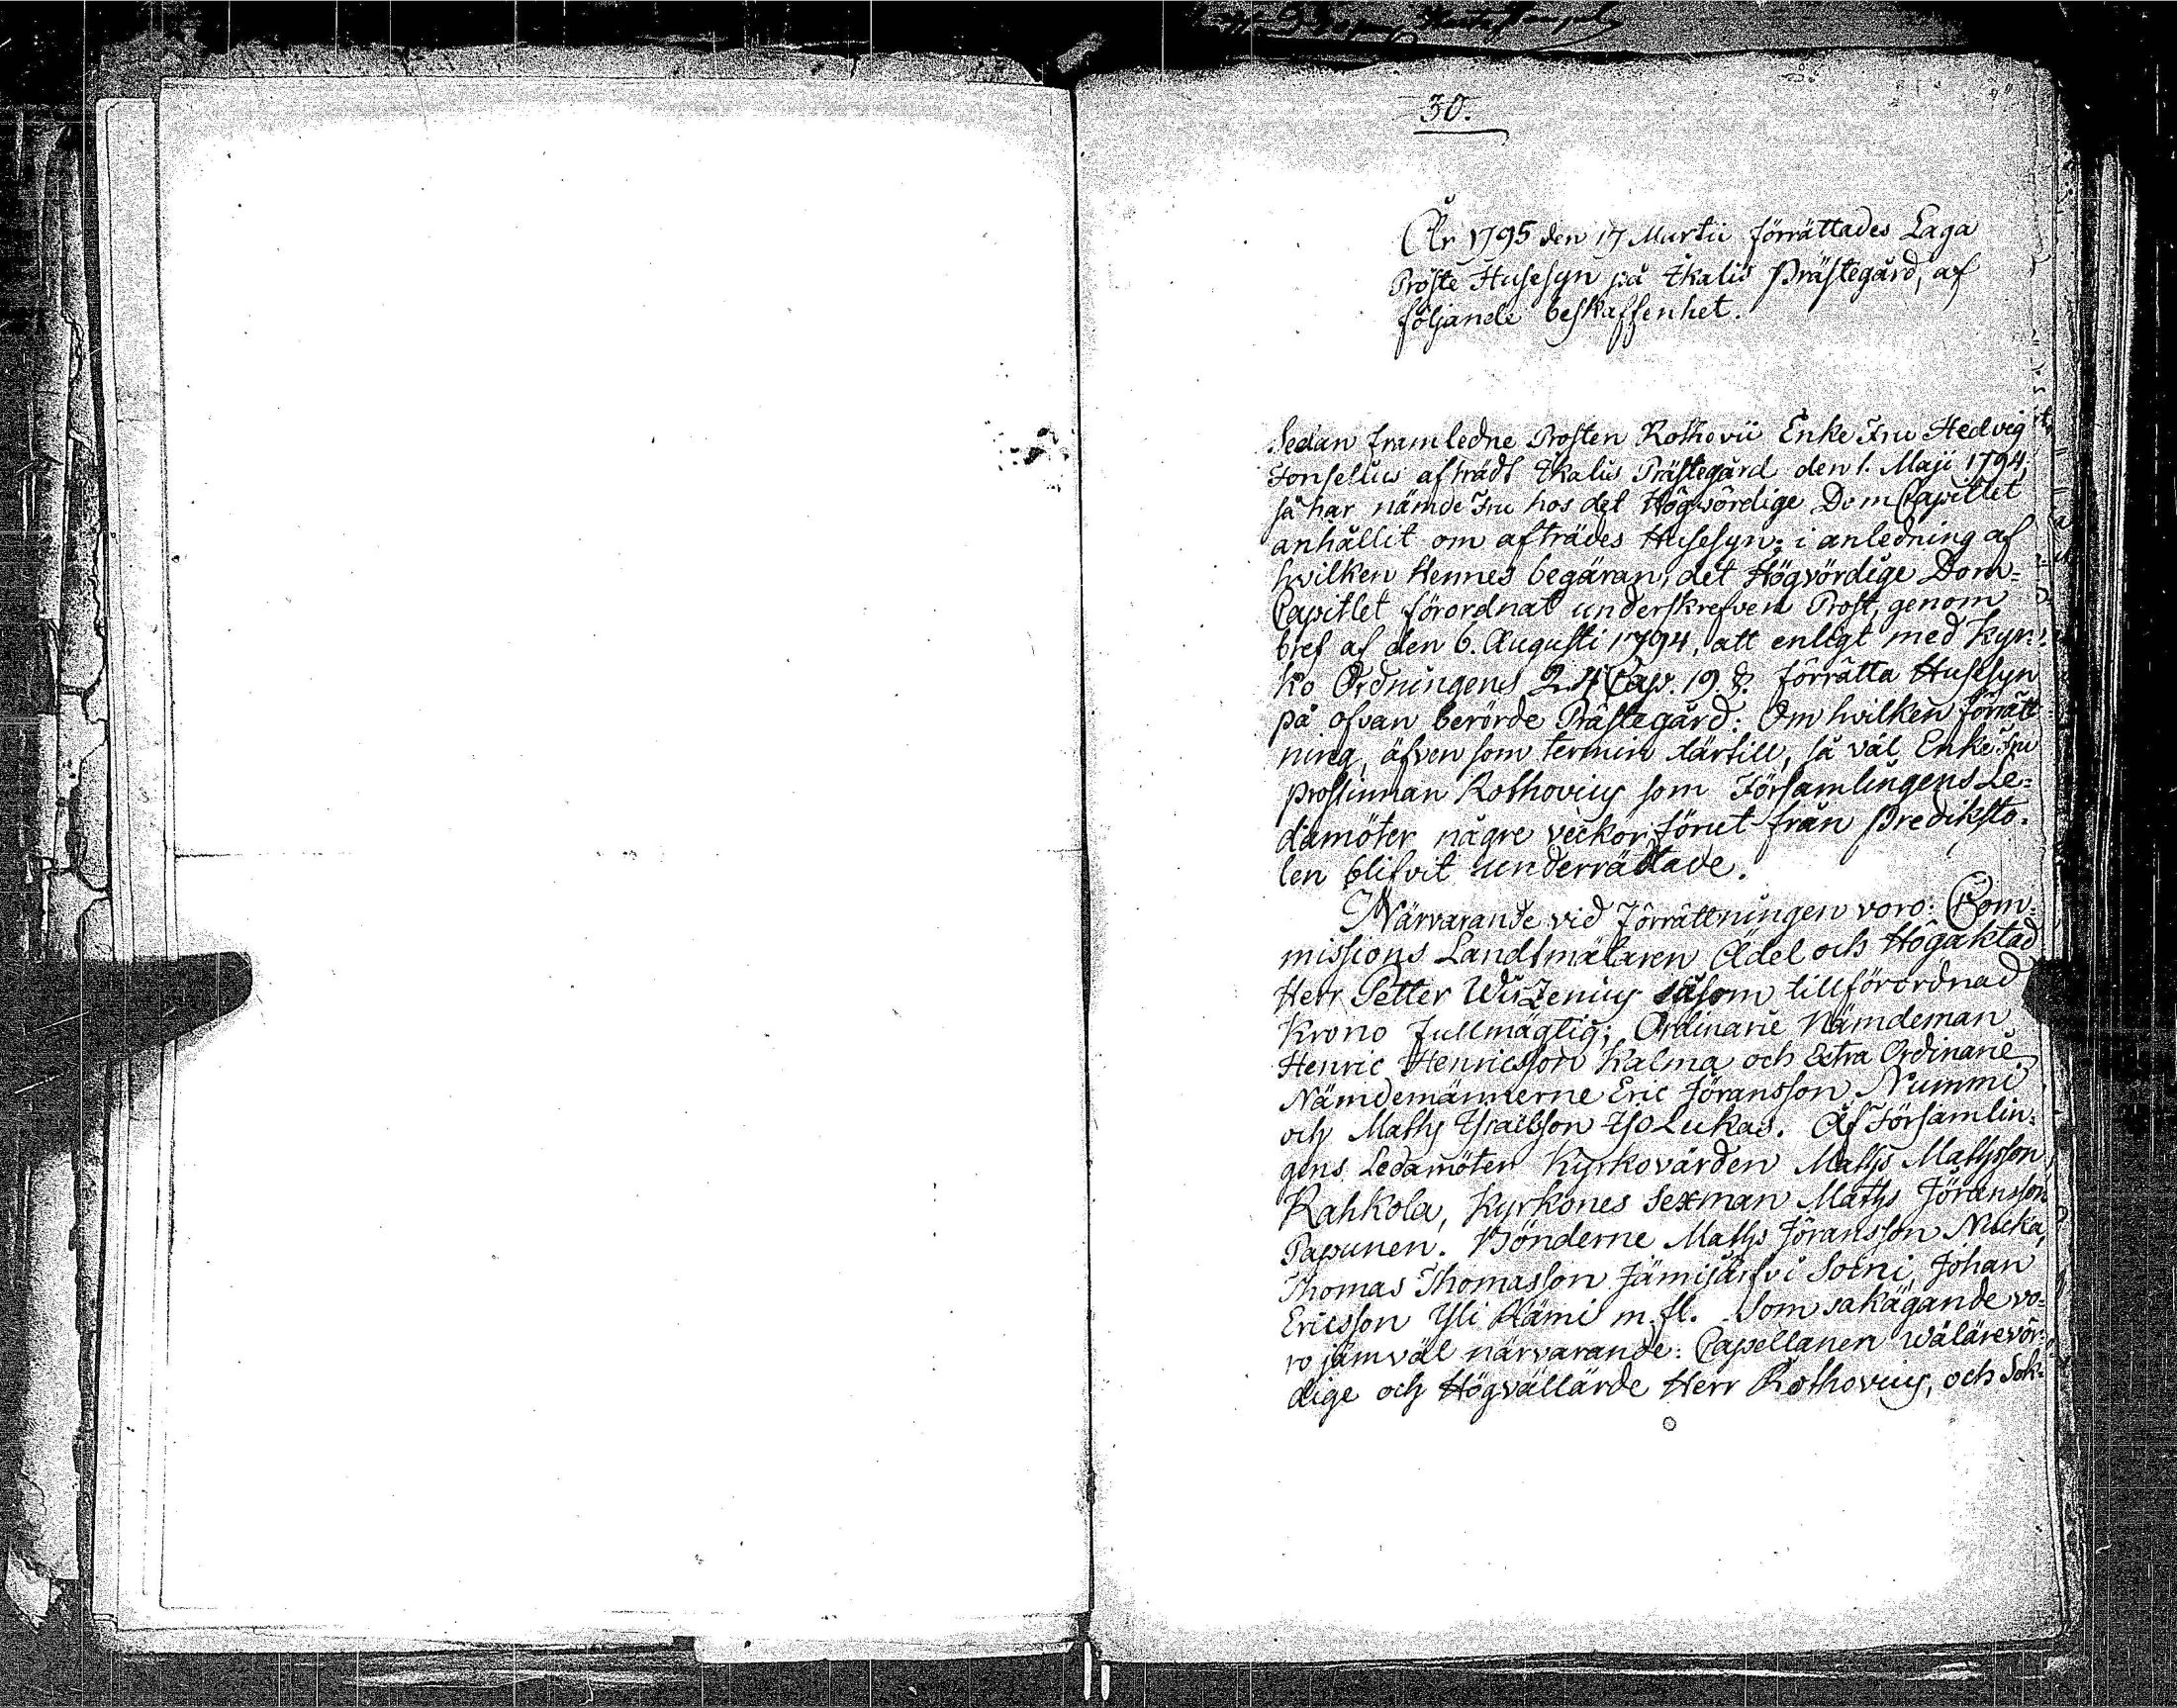 30.
År 1795 den 17 Martii förrättades Laga
Proste Husesyn på Ikalis Prästegård, af
följande beskaffenhet.
Sedan framledne Prosten Rothovii Enke Fru Hedvig
Fonselius afträdt Ikalis Prästegård den 1. Maji 1794,
så har nämde Fru hos det Högvördige DomCapitlet
anhållit om afträdes Husesyn; i anledning af
hvilken Hennes begäran, det Högvördige Dom=
Capitlet förordnat underskrefven Prost, genom
bref af den 6. Augusti 1794, att enligt med Kyr=
ko Ordningens 24 Cap. 19 §. förrätta Husesyn
på ofvan berörde Prästegård: Om hvilken förrätt
ning, äfven som termin därtill, så väl Enke Fru
Prostinnan Rothovius som Församlingens Le=
damöter någre veckor förut från Prediksto=
len blifvit underrättade.
Närvarande vid Förrättningen voro: Com=
missions Landtmätaren Ädel och Högaktad
Herr Petter Wi Zenius såsom tillförordnad
Krono Fullmägtig; Ordinarie Nämdeman
Henric Henricsson Kalma och Extra Ordinarie
Nämdemännerne Eric Jöransson Nummi
och Matts Israelsson Iso Lukas. Af Församlin=
gens Ledamöter Kyrkovärden Matts Mattsson
Rahkola, Kyrkones Sexman Matts Jöransson
Papunen. Bönderne Matts Jöransson Nucka,
Thomas Thomasson Jämijärfvi Soini, Johan
Ericsson Yli Kämi m. fl. Som sakägande vo=
ro jämväl närvarande: Capellanen Wälärevör=
dige och Högvällärde Herr Rothovius, och Sok=